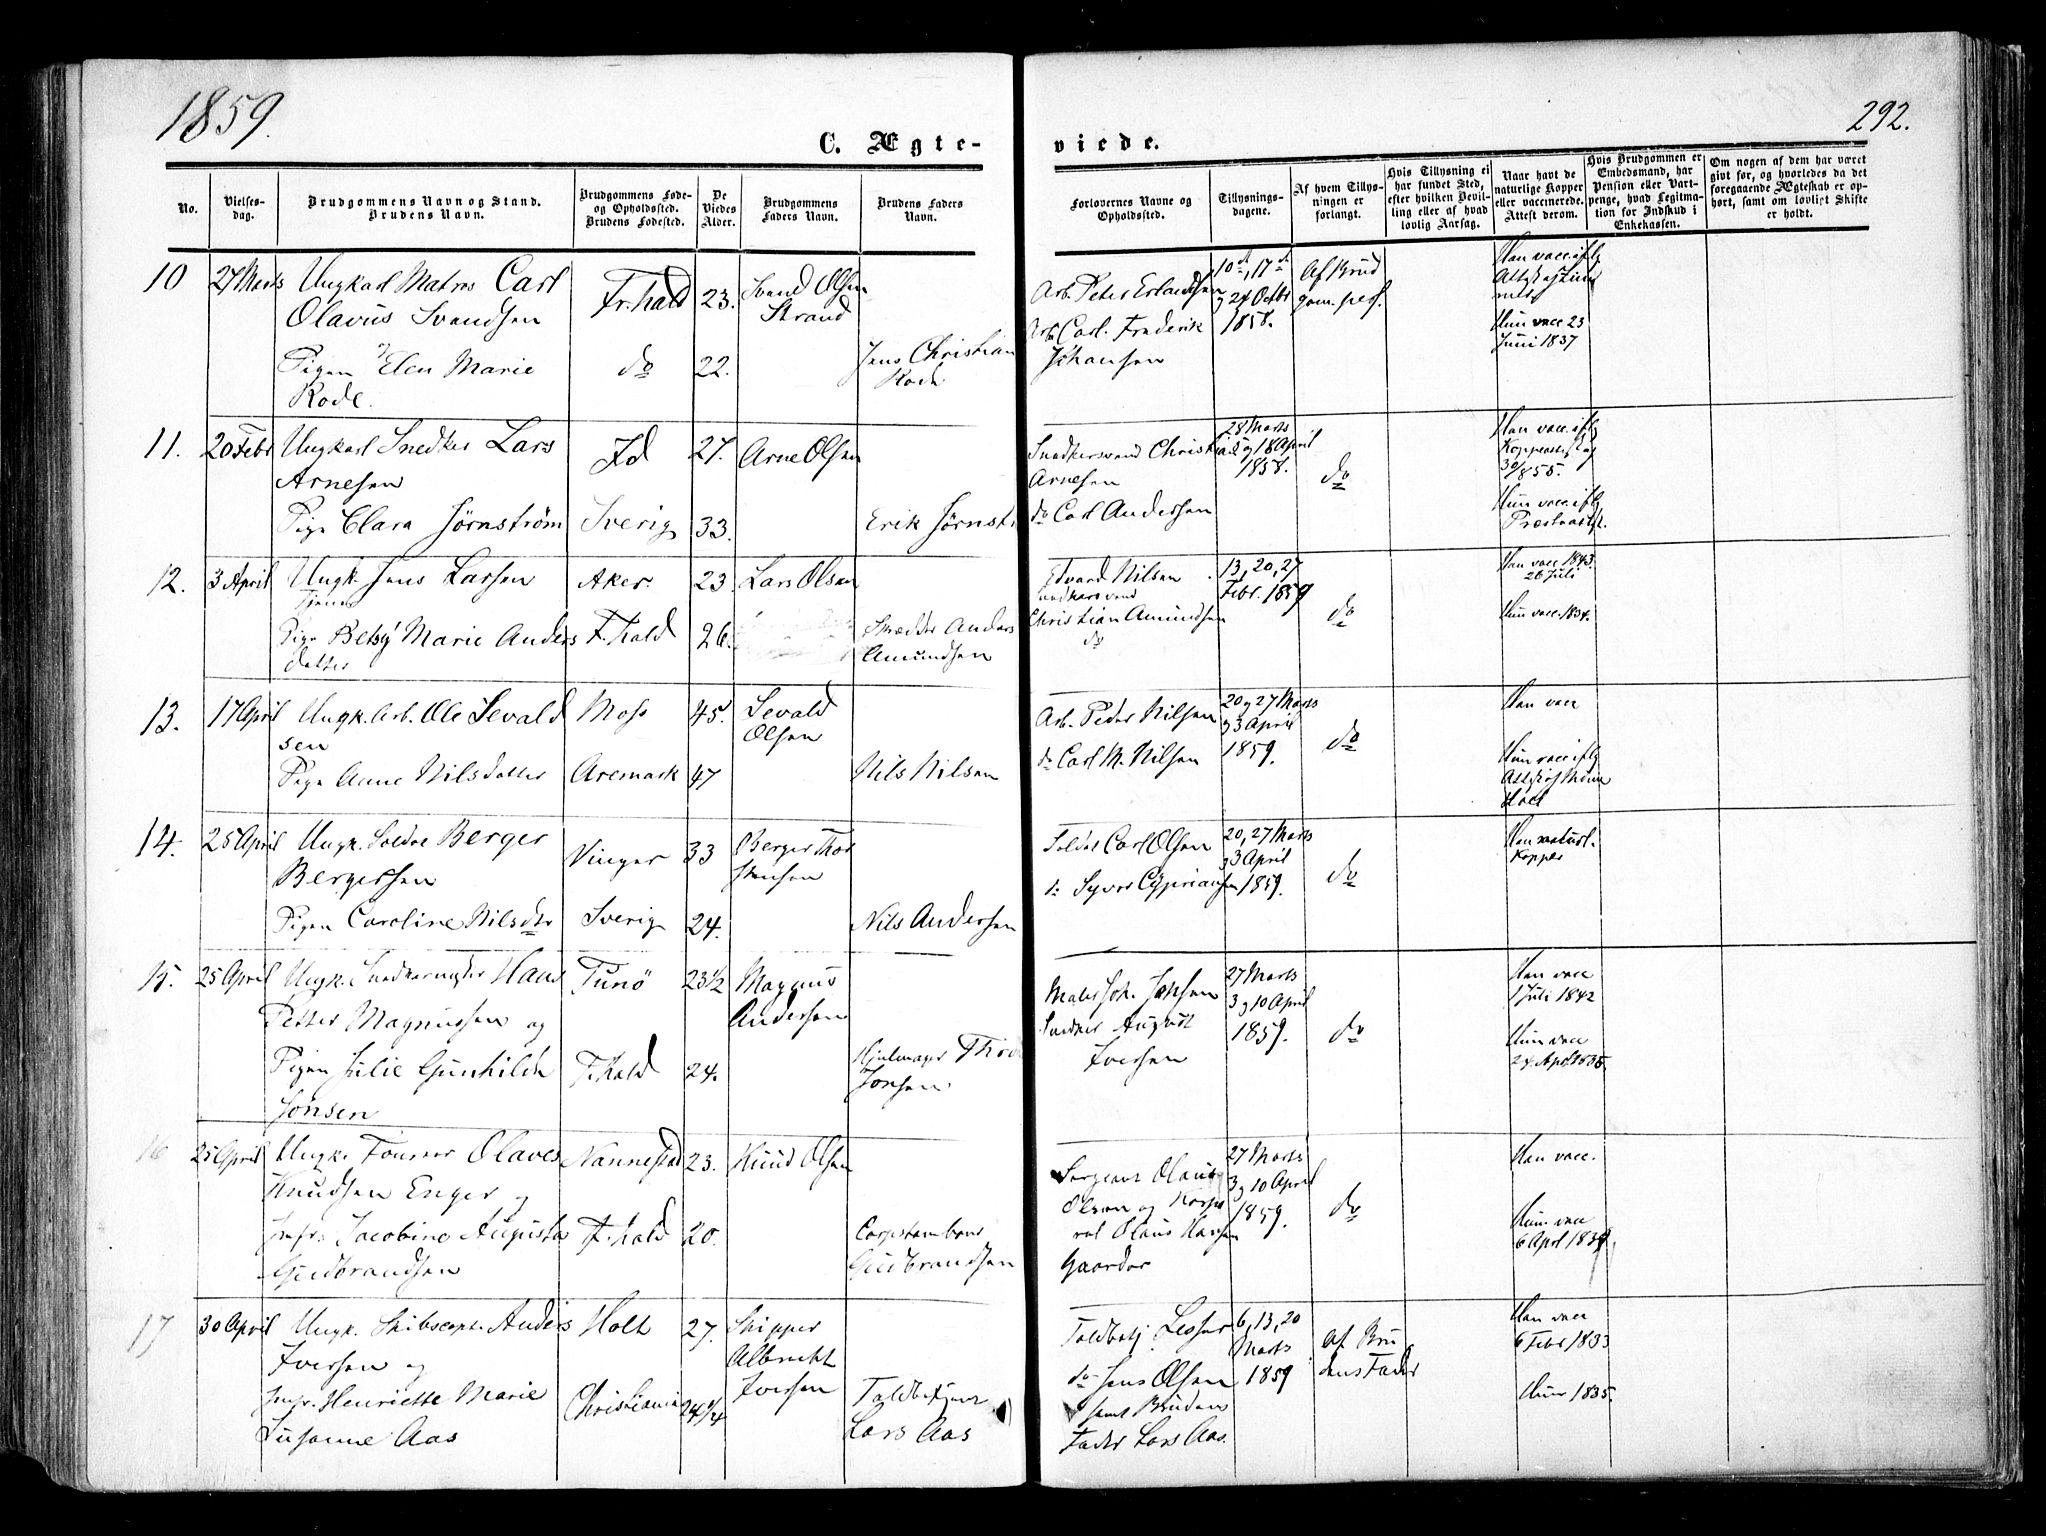 1859.
292.
C. Ægte-
viede.
No.
Vielses-
dag.
Brudgommens Navn og Stand.
Brudens Navn.
Brudgommens Føde-
og Opholdssted.
Brudens Fødested.
De
Viedes
Alder.
Brudgommens
Faders Navn.
Brudens Faders
Navn.
Forlovernes Navne og
Opholdssted.
Tillysnings-
dagene.
Af hvem Tillys-
ningen er
forlangt.
Hvis Tillysning ei
har fundet Sted,
efter hvilken Bevil-
ling eller af hvad
lovlig Aarsag.
Naar havt de
naturlige Kopper
eller vaccinerede.
Attest derom.
Hvis Brudgommen er
Embedsmand, har
Pension eller Vart-
penge, hvad Legitma-
tion for Indskud i
Enkekassen.
Om nogen af dem har været
givt før, og hvorledes da det
foregaaende Ægteskab er op-
hørt, samt om lovligt Skifte
er holdt.
10
27 Marts
Ungkarl Matros Carl
Olavus Svendsen
Pigen Elen Marie
Rode.
Fr.hald
do
23.
22.
Svend Olsen
Strand
Jens Christian
Rode
Arb. Peter Erlandsen
Arb. Carl. Frederik
Johansen
10de, 17de
og 24 Octbr
1858.
Af Brud
gom. pers.
Han vacc. iflg
Hun vacc 23
Juni 1837
11.
20 Febr
Ungkarl Snedker Lars
Arnesen
Pige Clara Jörnström
Id
Sverig
27.
33.
Arne Olsen
Erik Jörnst
Snedkersvend Christian
Arnesen
do Carl Andersen
28 Marts
og 18 April
1858.
do
Han vacc. iflg
Koppeattest af
30/ 1855.
Hun vacc. iflg
Præsteattst.
12.
3 April
Ungk. Jens Larsen
Tjener
Pige Betsy Marie Anders
datter
Aker.
F.hald
23.
26.
Lars Olsen
Skrædder Anders
Amundsen
Edvard Nilsen
Snedkersvend
Christian Amundsen
do
13, 20, 27
Febr. 1859
do
Han vacc 1843.
26 Juli
Hun vacc. 1834.
13.
17 April
Ungk. Arb. Ole Sevald
sen
Pige Anne Nilsdatter
Moss
Aremark
45.
47
Sevald
Olsen
Nils Nilsen
Arb. Peder Nilsen
do Carl M. Nilsen
20 og 27 Marts
og 3 April
1859.
do
Han vacc
Hun vacc iflg
14.
25 April
Ungk. Soldat Berger
Bergersen
Pigen Caroline Nilsdtr
Vinger
Sverig
33
24.
Berger Thor
stensen
Nils Andersen
Soldat Carl Olsen
do Syver Cyprian
20, 27 Marts
og 3 April
1859.
do
Han naturl.
Kopper
15.
25 April
Ungk. Snedkermester Hans
Petter Magnussen og
Pigen Julie Gunhilde
Jonsen
Tunö
F.hald
23 1/2
24.
Magnus
Andersen
Hjulmager Thor
Jonsen.
Maler Joh. Jonsen
Snedker August
Iversen
27 Marts
3 og 10 April
1859.
do
Han vacc
1 Juli 1842
Hun vacc
24. Apr. 1835.
16
25 April
Ungk. Fourer Olaves
Knudsen Enger og
Jmfr. Jacobine Augusta
Gudbrandsen
Nannestad
F.hald
23.
20.
Knud Olsen
Corpstambour
Gudbrandsen
Sergeant Olaus
Olsen og Korpo
ral Olaus Hansen
Gaarder
27 Marts
3 og 10 April
1859.
do
Han vacc.
Hun vacc
6 Apr. 1839.
17
30 April
Ungk. Skibscapt. Anders
Iversen og
Jmfr. Henriette Marie
Susanne Aas
Holt
Christiania
27.
24 1/4
Skipper
Albrecht
Iversen
Toldbetjent
Lars Aas
Toldbetj. Lesser
do Jens Olsen
samt Brudens
Fader Lars Aas.
6, 13, 20
Marts
1859
Af Bru
dens Fader
Han vacc
6 Febr 1833
Hun 1835.